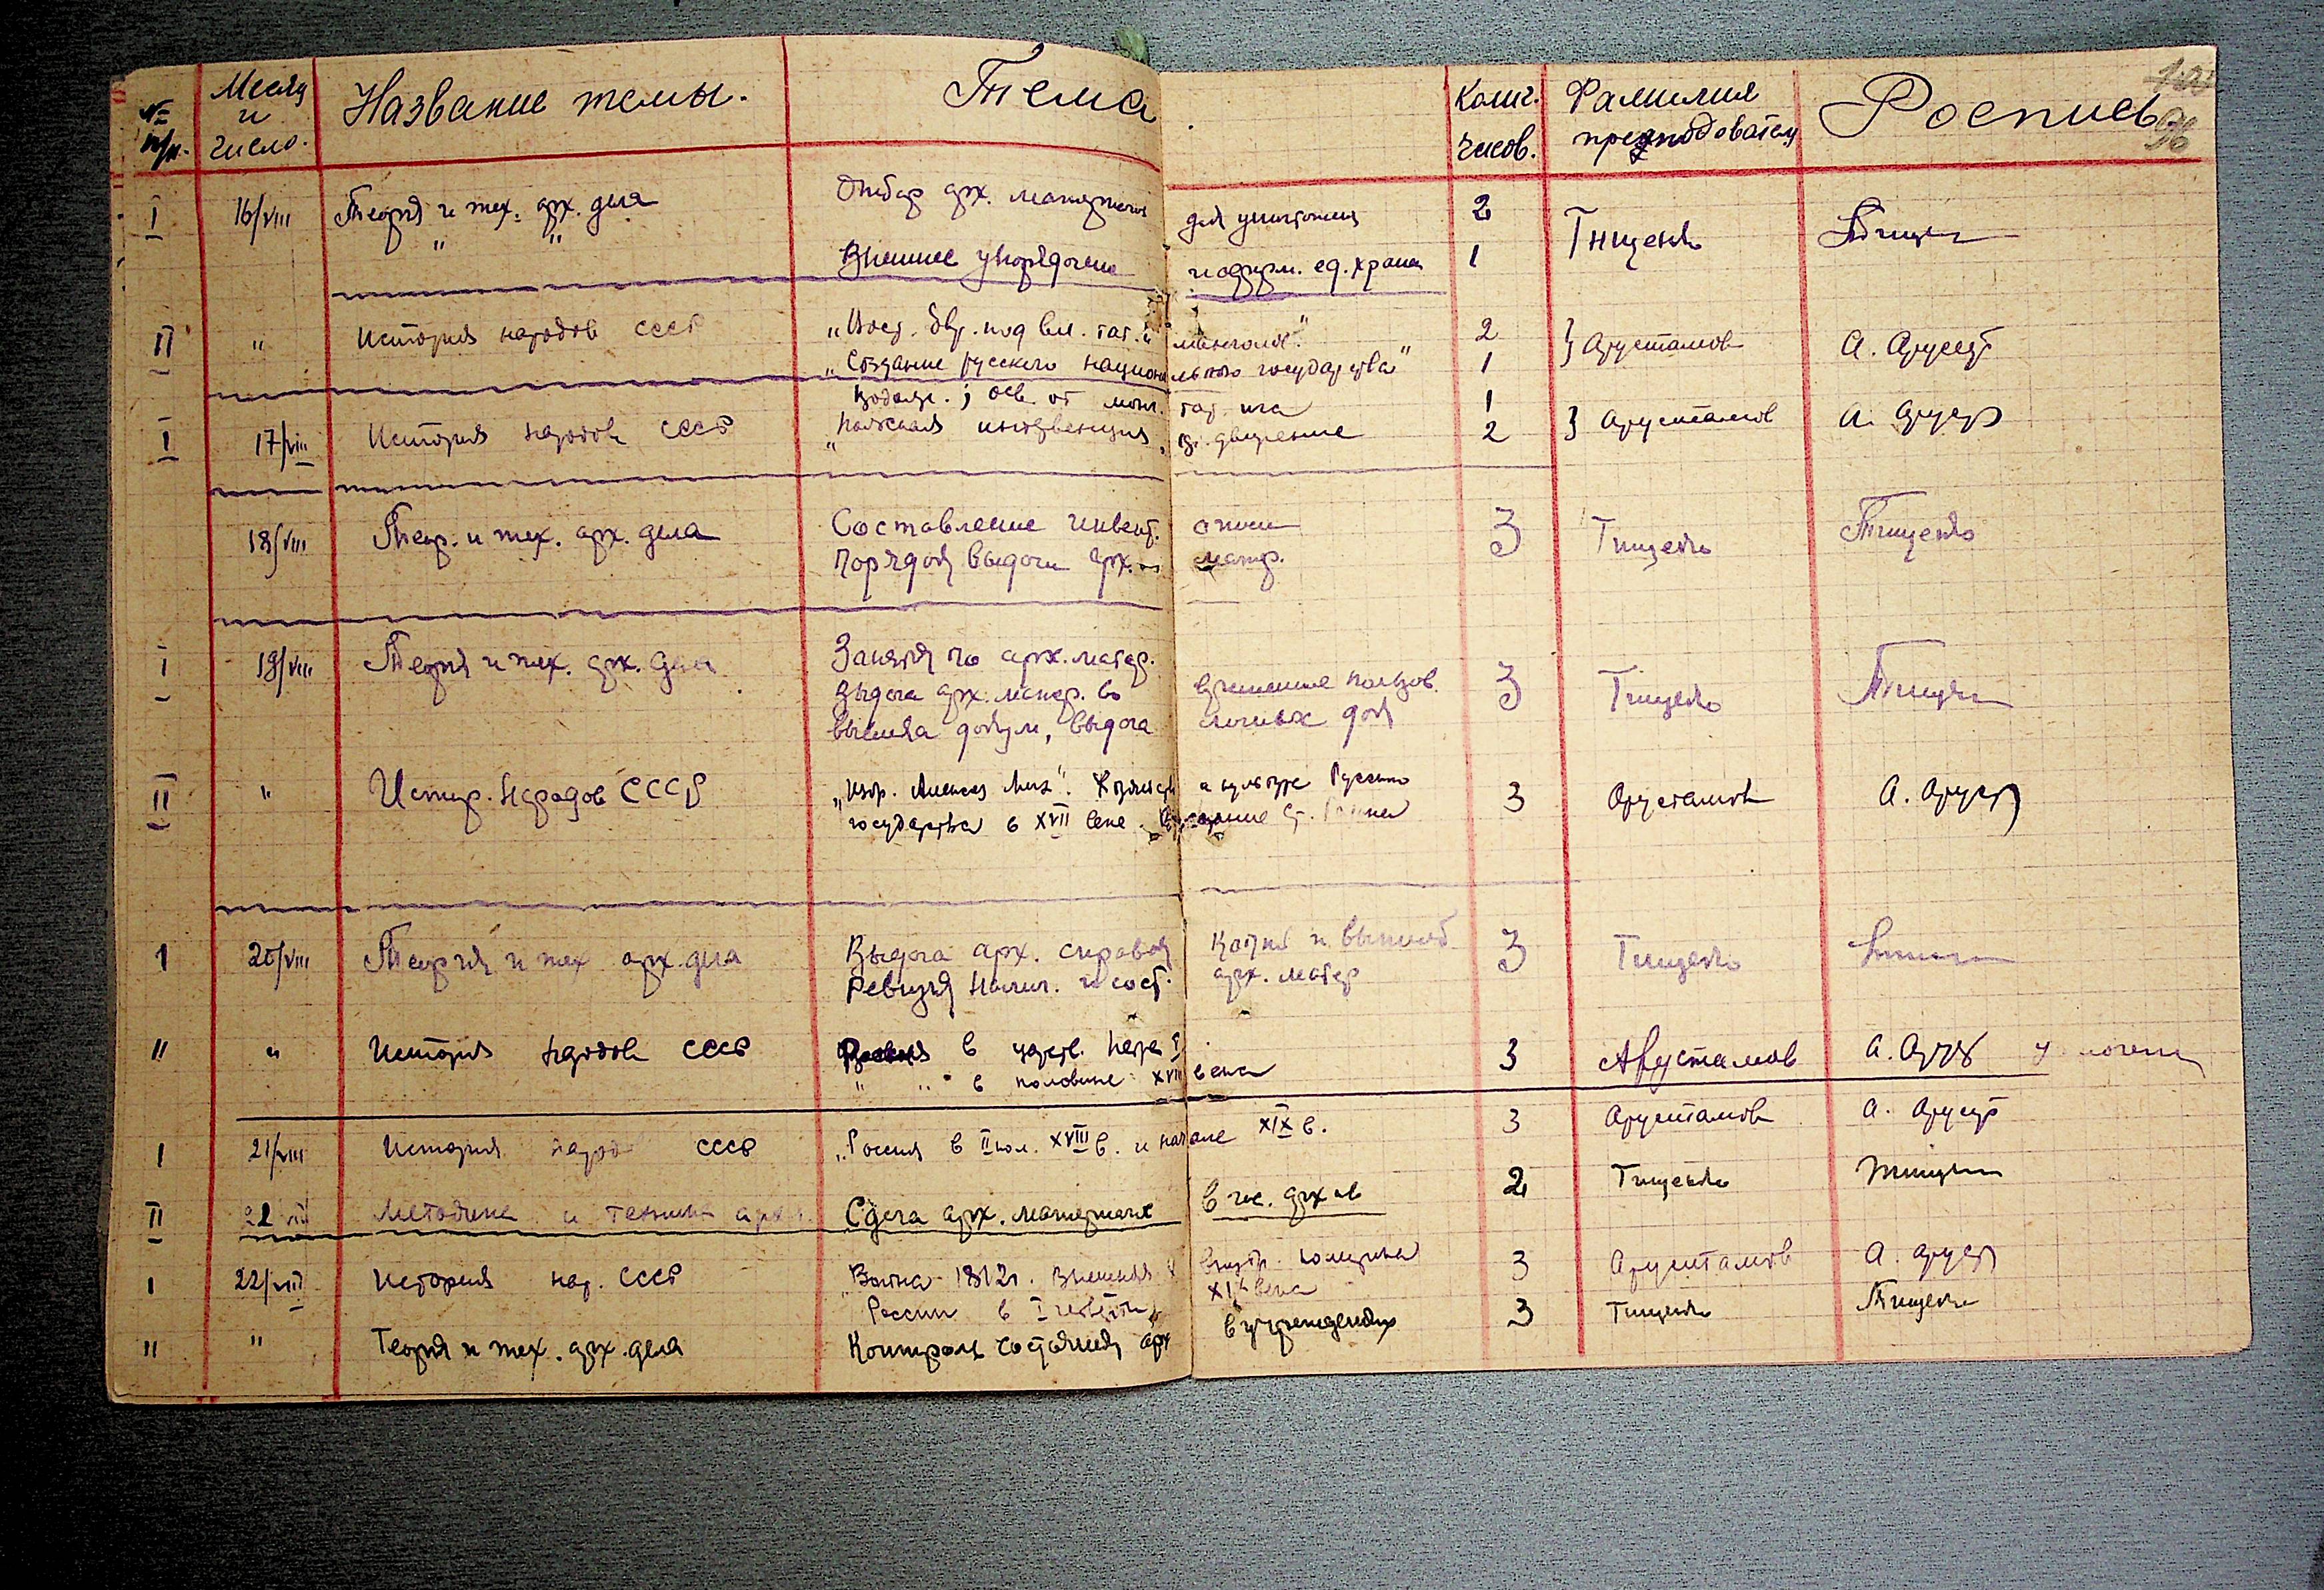 № п/п. Месяц и число. Название темы. Тема Колич. часов. Фамилия преподователя Роспись
96
I 16/VIII Теория и тех. арх. дела Отбор арх. материала для уничтожен 2 Тищенко
" " Внешнее упорядочение и оформ. ед. хранен 1
II " История народов СССР под вл. тат. и монголов." 2 } Арустамов А. Аруст
"Создание русского национального государства" 1
осв. от монг. тат. ига 1
I 17/VIII История народов СССР "Польская интервенция, движение 2 } Арустамов А. Аруст
18/VIII Теор. и тех. арх. дела Составление инвент. описи 3 Тищенко Тищенко
Порядок выдачи арх. матер.
I 19/VIII Теория и тех. арх. дела Занятия по арх. матер.
Выдача арх. матер. во временное пользов. 3 Тищенко
высылка докум, выдача личных док
II " Истор. Народов СССР Хозяйст и культура Русского 3 Арустамов А. Аруст
государства в XVII веке.
I 20/VIII Теория и тех арх. дела Выдача арх. справок копий и выписок 3 Тищенко
Ревизия налич. и сост. арх. матер
II " История народов СССР Россия в царств. Петра I 3 Арустамов А. Аруст
" " в половине XVIII века
I 21/VIII История народ СССР "Россия в II пол. XVIII в. и начале XIX в. 3 Арустамов А. Аруст
II 21 VIII Методика и техника арх Сдача арх. материалов в гос. архив 2 Тищенко
I 22/VIII История нар. СССР "Война 1812г. Внешняя и внутр. политика 3 Арустамов А. Аруст
России в I четверти XIX века
II " Теория и тех. арх. дела Контроль состояния арх в учреждениях 3 Тищенко Тищенко